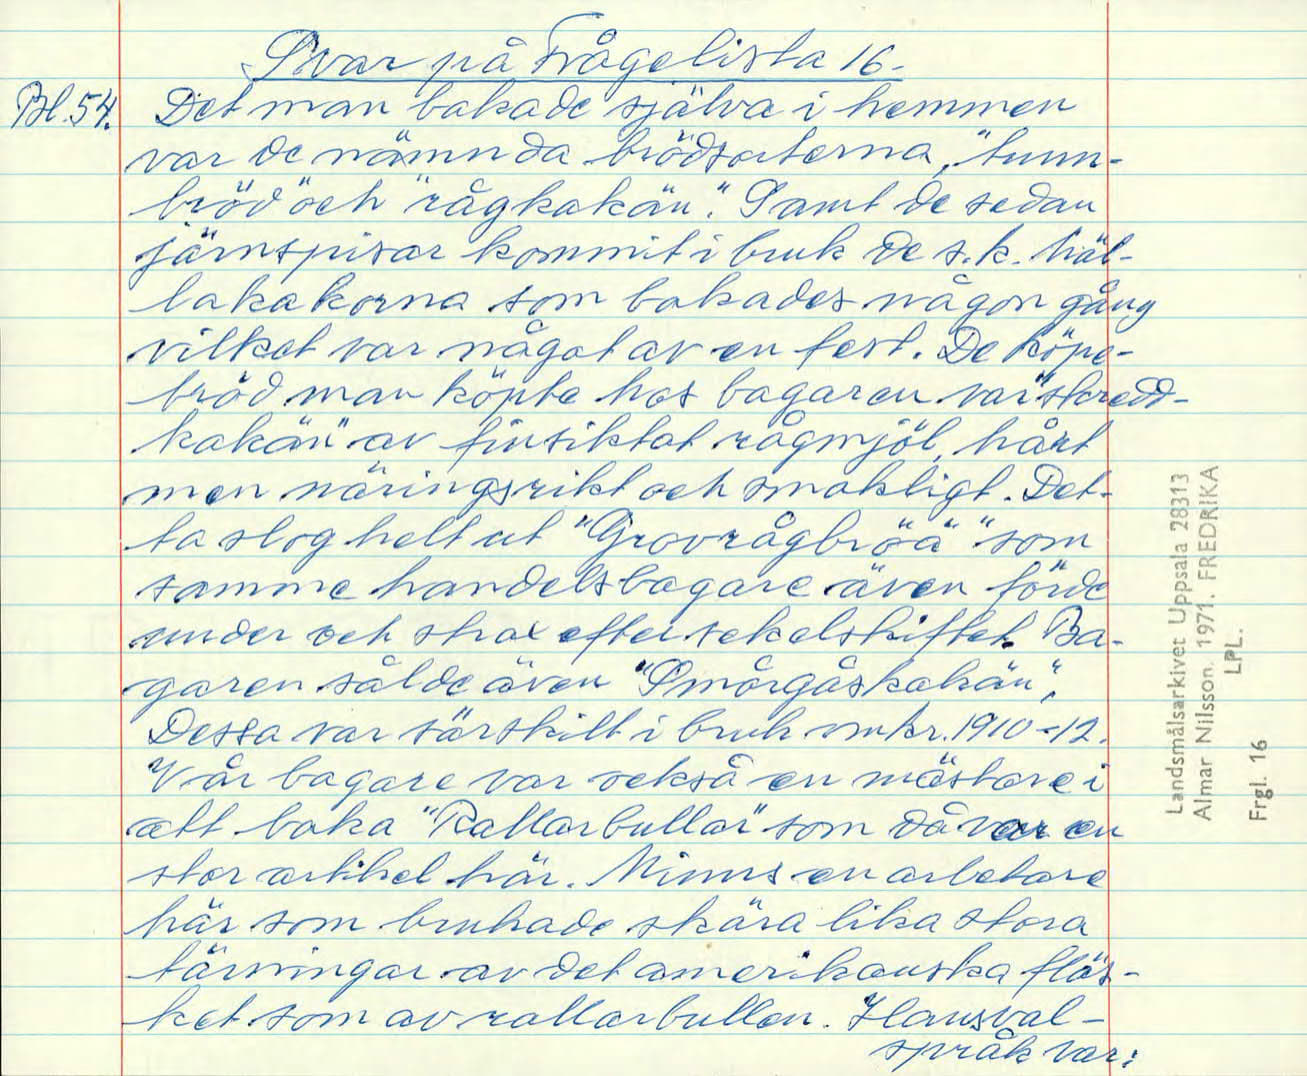 Svar på Frågelista 16.
Bl. 54. Det man bakade själva i hemmen
var de nämnda brödsorterna, "tunn-
bröd" och "rågkakän". Samt de sedan
järnspisar kommit i bruk de s.k. häl-
lakakorna som bakades någon gång
vilket var något av en fest. De köpe-
bröd man köpte hos bagaren var "bredd-
kakän" av finsiktat rågmjöl, hårt
men näringsrikt och smakligt. Det-
ta slog helt ut "Grovrågbröä" som
samme handelsbagare även förde
under och strax efter sekelskiftet. Ba-
garen sålde även "Smörgåskakän".
Dessa var särskilt i bruk omkr. 1910-12.
Vår bagare var också en mästare i
att baka "Rallarbullar" som då var en
stor artikel här. Minns en arbetare
här som brukade skära lika stora
tärningar av det amerikanska fläs-
ket som av rallarbullen. Hans val-
språk var:
Landsmålsarkivet Uppsala 28313
Almar Nilsson. 1971. FREDRIKA
LPL.
Frgl. 16